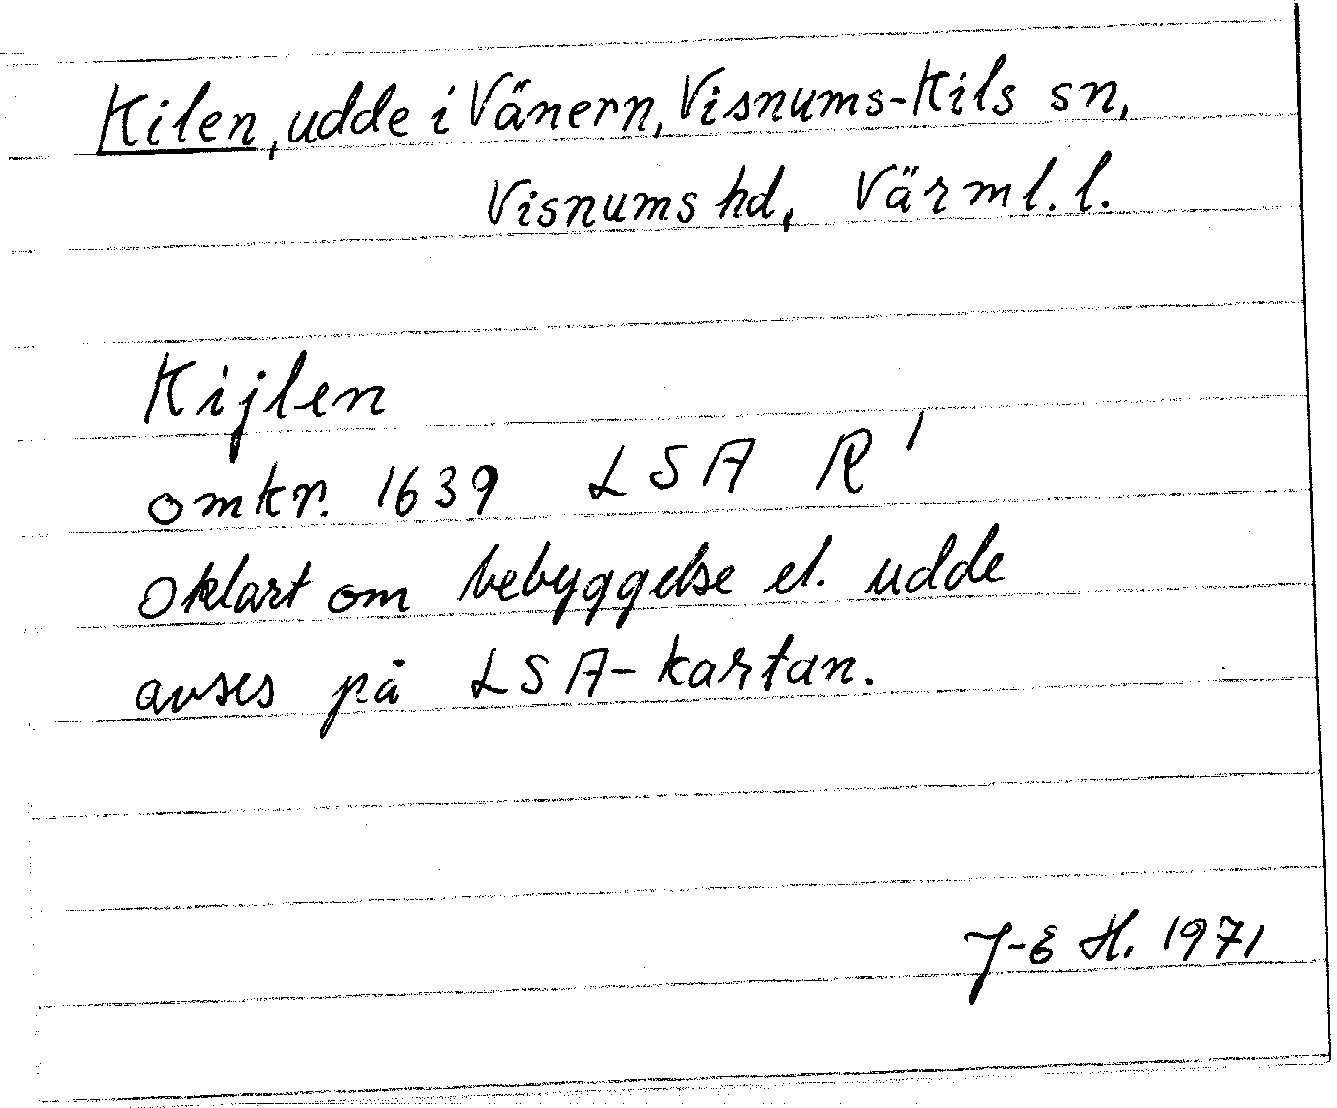 Kilen, udde i Vänern, Visnums-Kils sn,
Visnums hd, Värml. l.
Kijlen
omkr. 1639 LSA R¹
oklart om bebyggelse el. udde
avses på LSA-kartan.
J-E H. 1971